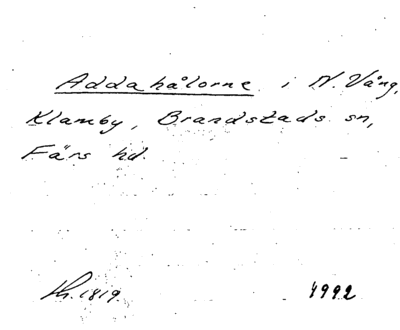 Addahålorne i N. Vång,
Klamby, Brandstads sn,
Färs hd.
1819. 4992